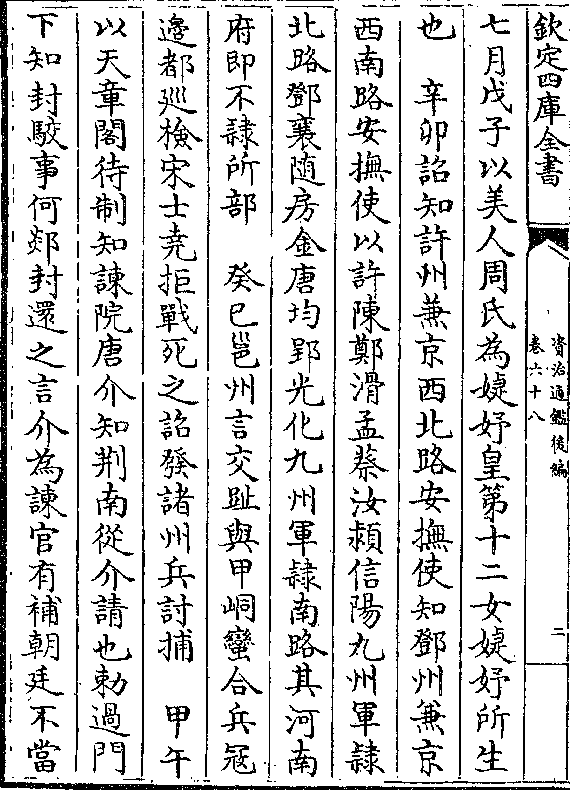 欽定四庫全書
資治通鑑後編
卷六十八
二
七月戊子以美人周氏為婕妤皇第十二女婕妤所生
也　辛卯詔知許州兼京西北路安撫使知鄧州兼京
西南路安撫使以許陳鄭滑孟蔡汝潁信陽九州軍隸
北路鄧襄随房金唐均郢光化九州軍隸南路其河南
府即不隷所部　癸巳邕州言交趾與甲峒蠻合兵冦
邉都廵檢宋士堯拒戰死之詔發諸州兵討捕　甲午
以天章閣待制知諫院唐介知荆南從介請也勅過門
下知封駮事何郯封還之言介為諫官有補朝廷不當